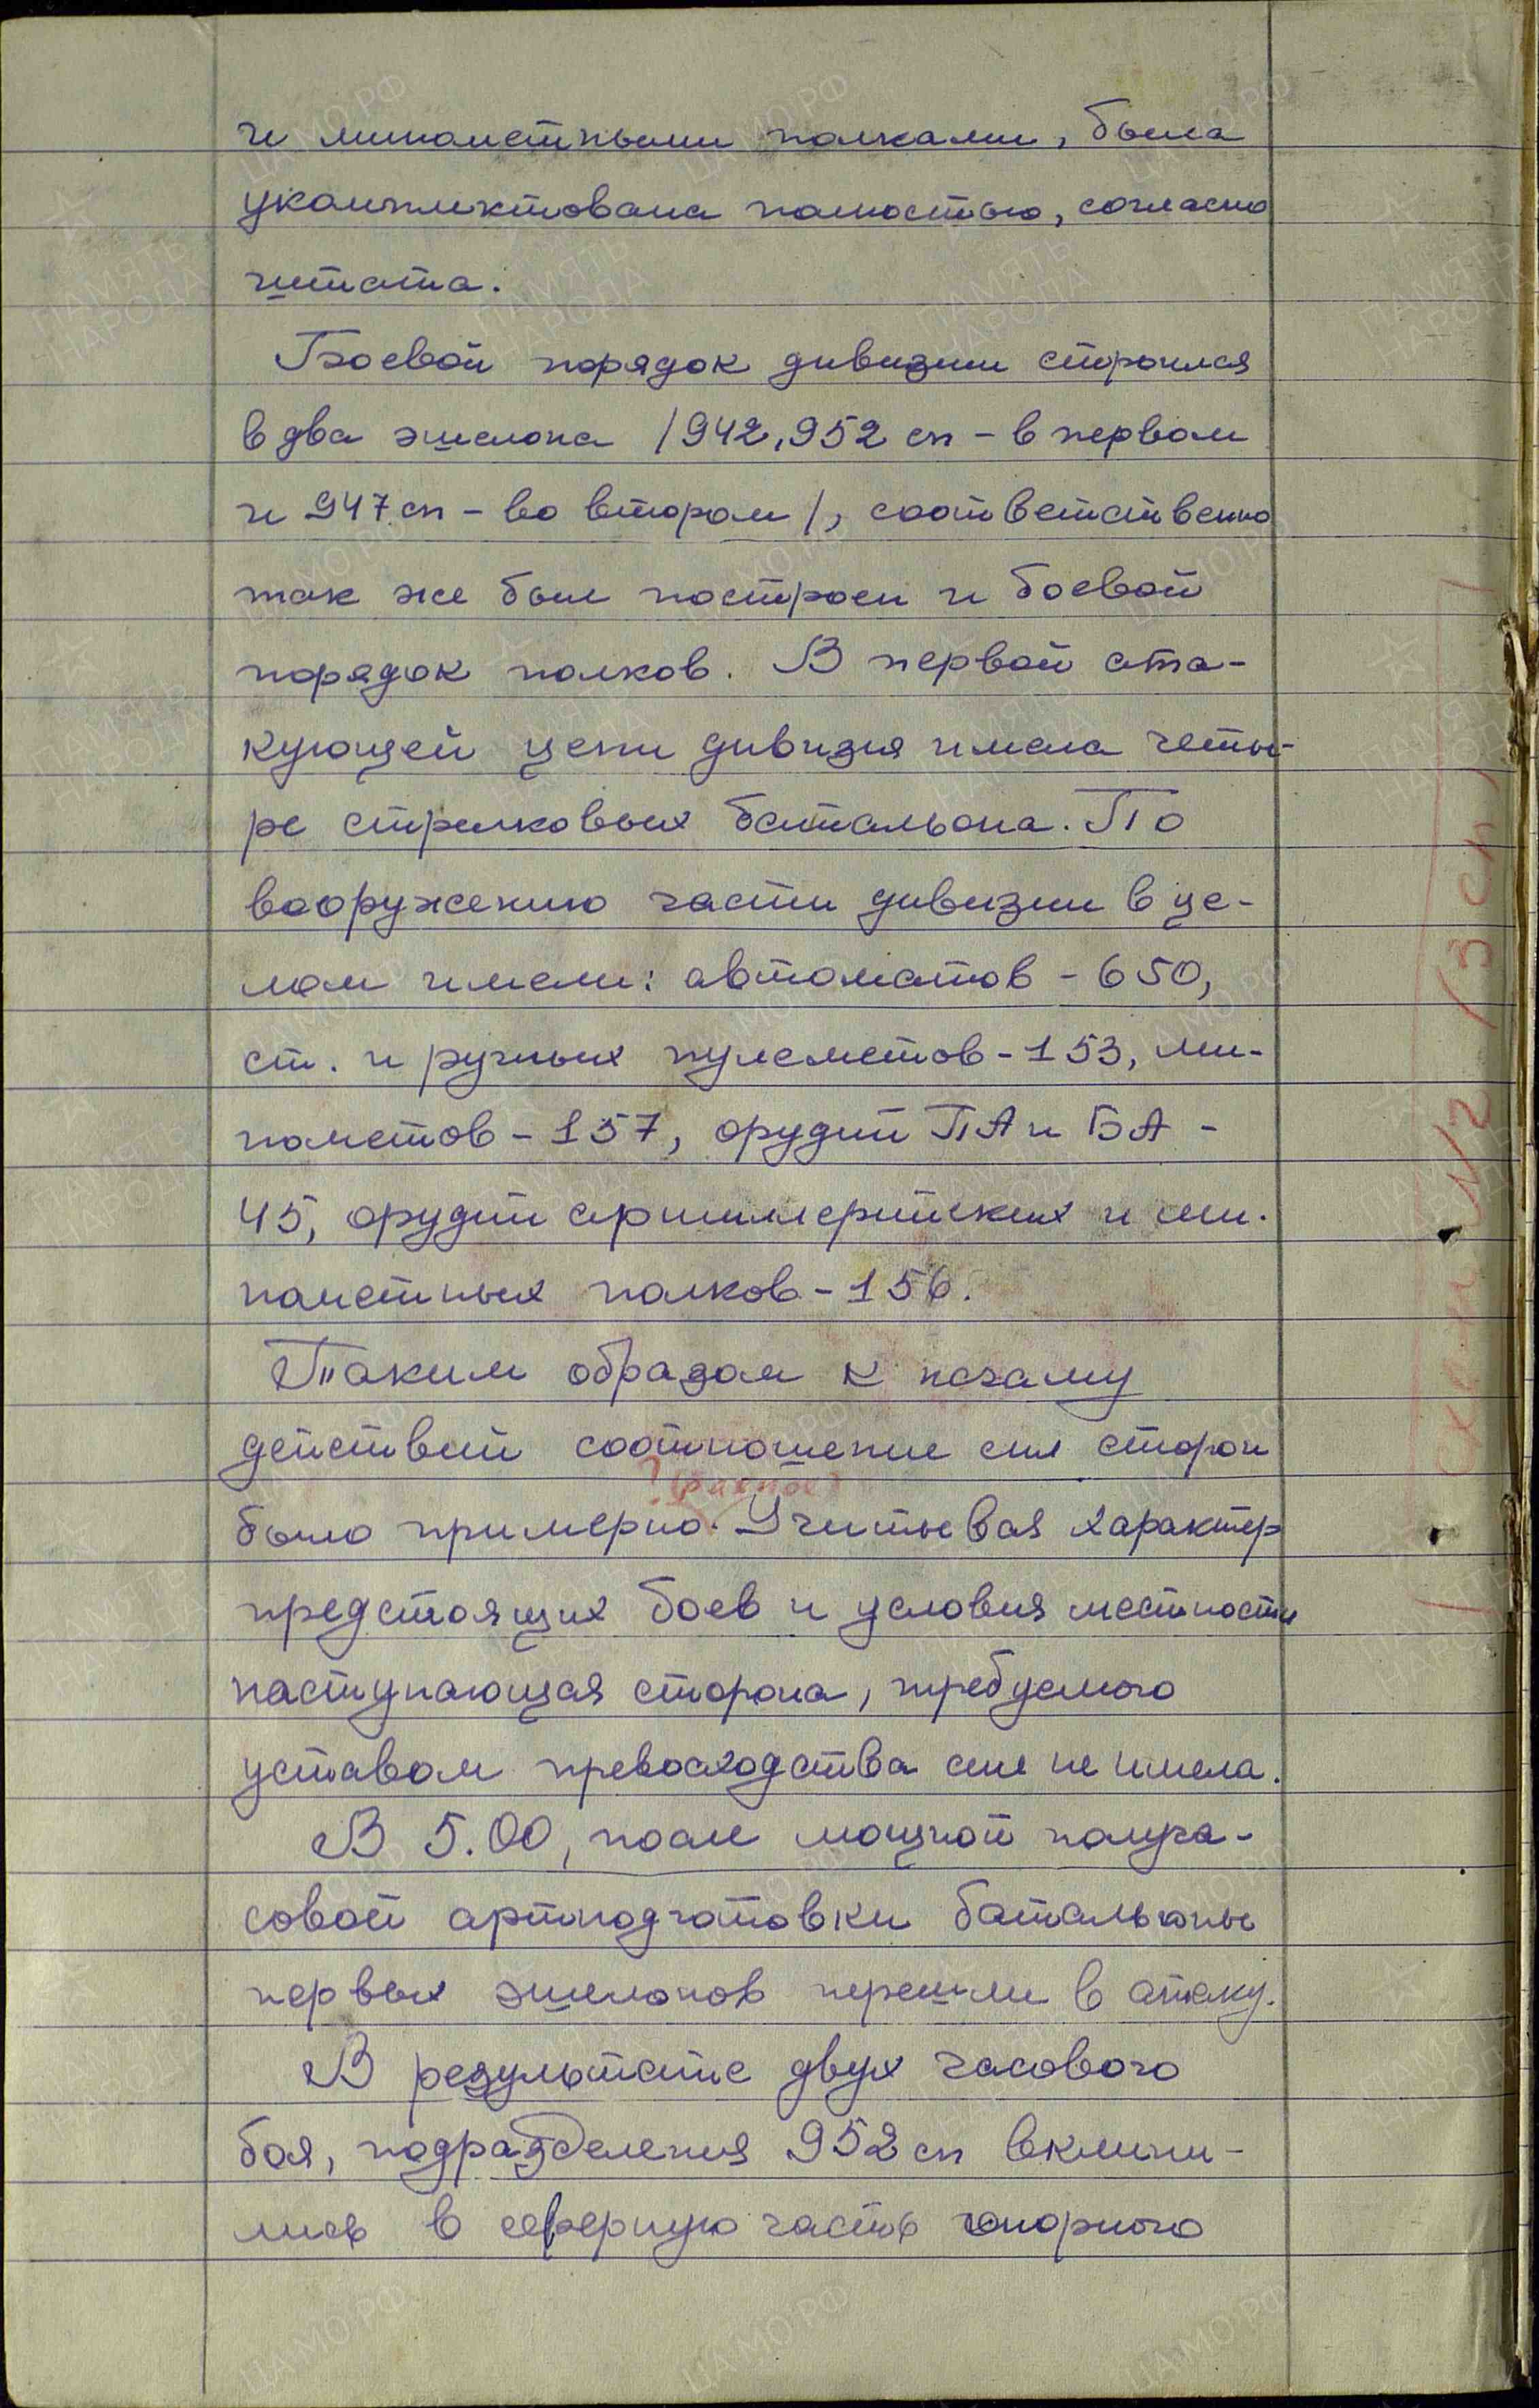 и минометными полками, была
укомплектована полностью, согласно
штата.
Боевой порядок дивизии строился
в два эшелона /942, 952 сп - в первом
и 947 сп - во втором/, соответственно
так же был построен и боевой
порядок полков. В первой ата-
кующей цепи дивизия имела четы-
ре стрелковых батальона. По
вооружению части дивизии в це-
лом имели: автоматов - 650,
ст. и ручных пулеметов - 153, ми-
нометов - 157, орудий ПА и БА -
45, орудий артиллерийских и ми-
нометных полков - 156.
Таким образом к началу
действий соотношение сил сторон
? (равное)
было примерно. Учитывая характер
предстоящих боев и условия местности
наступающая сторона, требуемого
уставом превосходства сил не имела.
В 5.00, после мощной получа-
совой артподготовки батальоны
первых эшелонов перешли в атаку.
В результате двух часового
боя, подразделения 952 сп вклини-
лись в северную часть опорного
ЦАМО.РФ
ПАМЯТЬ
НАРОДА